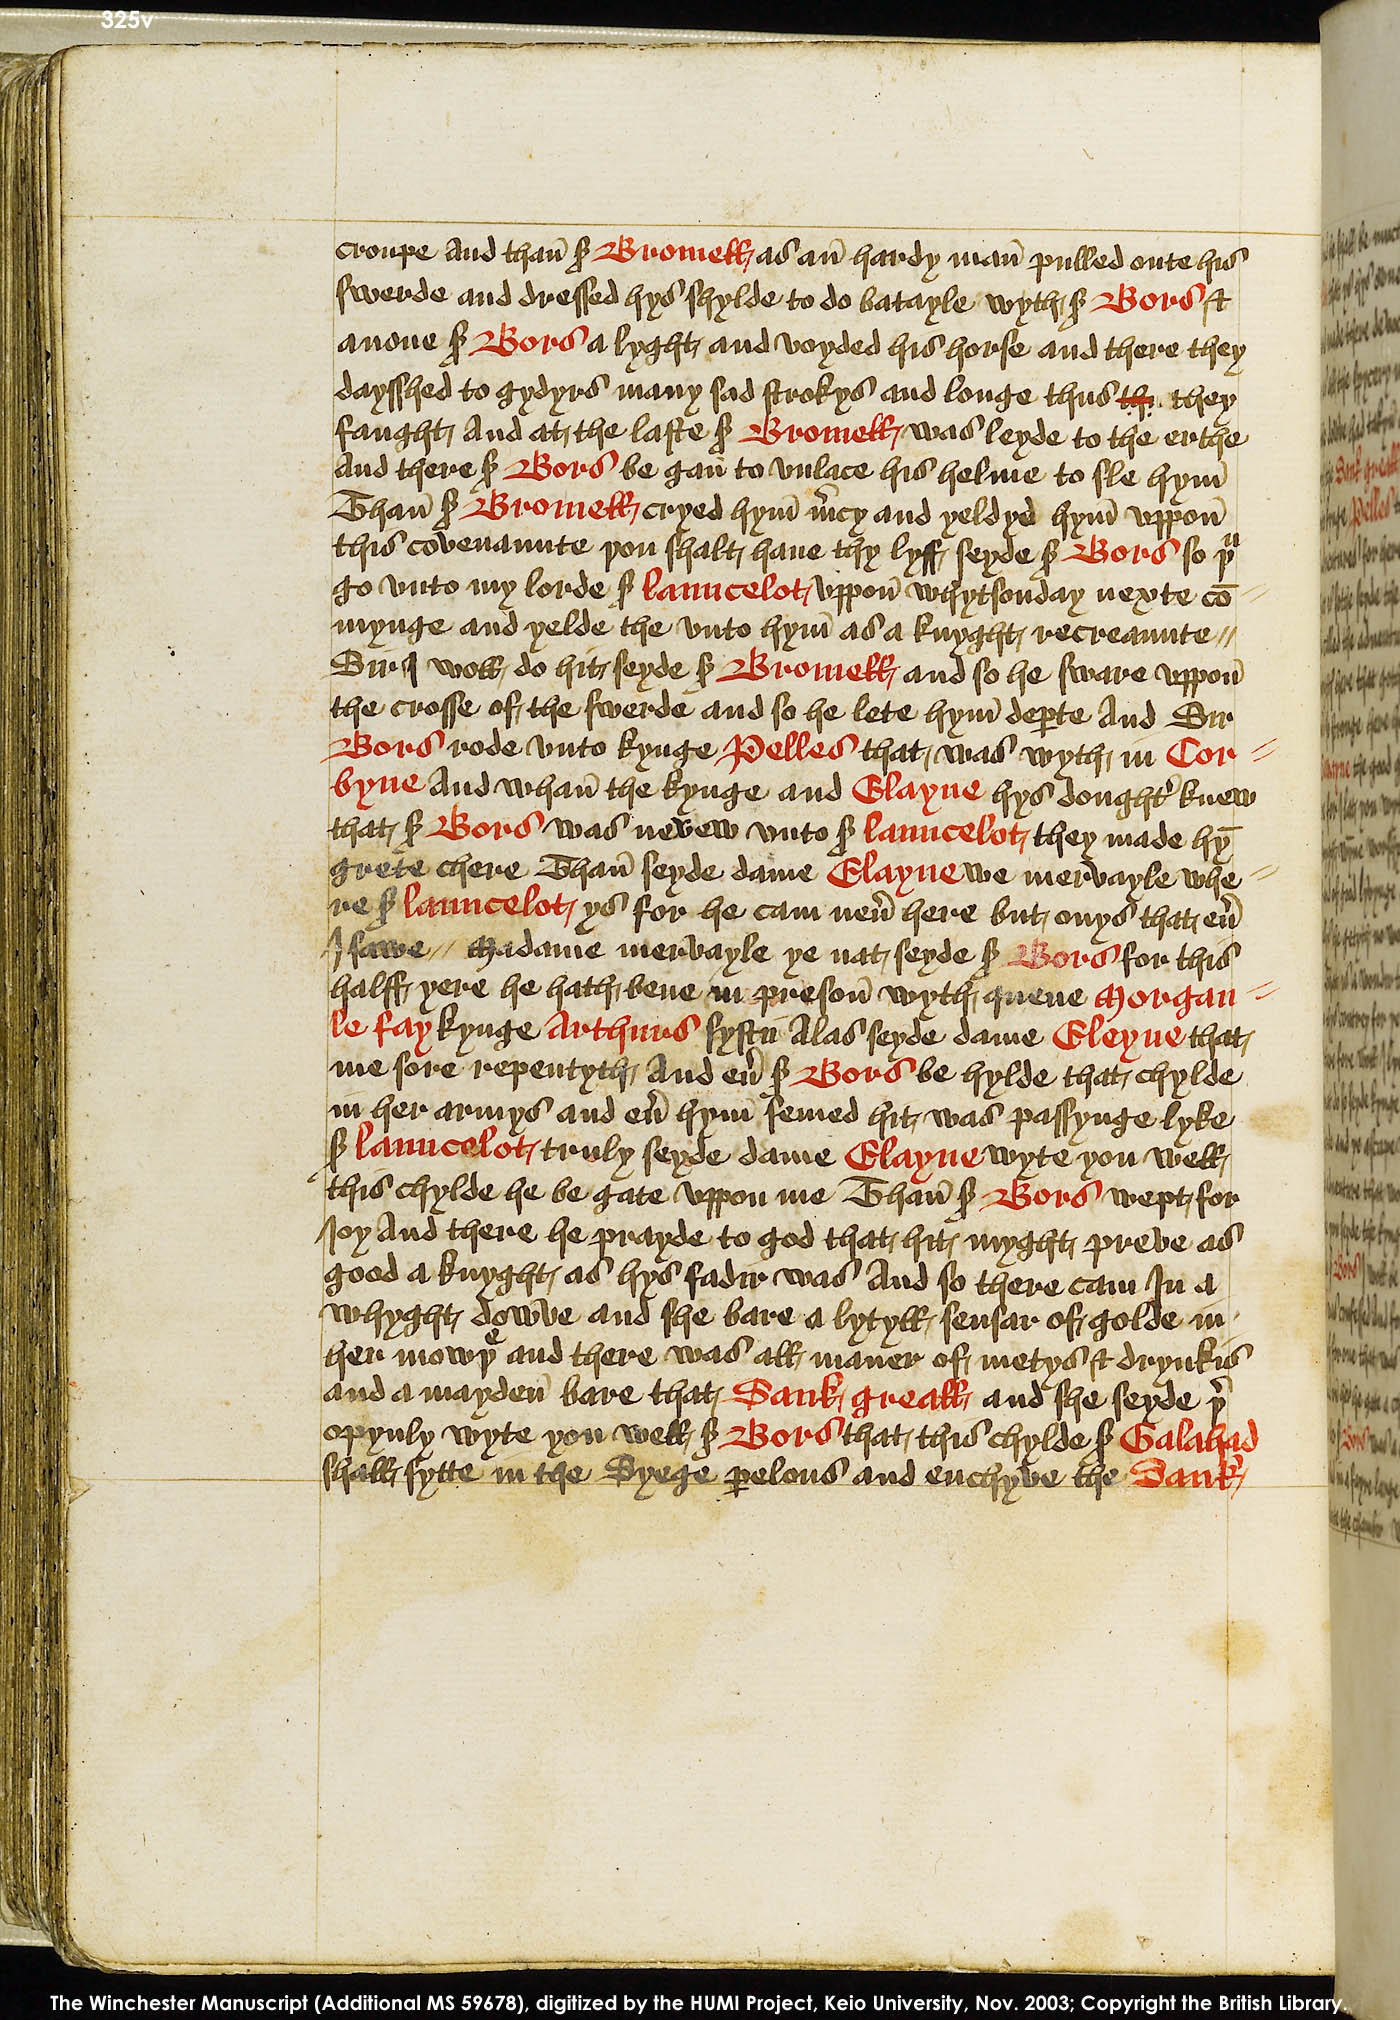 325v
croupe And than̄ sꝛ Bromell as an̄ hardy man̄ pulled oute his
swerde and dressed hys shylde to do batayle wyth sꝛ Bors &
anone sꝛ Bors a lyght and voyded his horse and there they
daysshed to gydyrs many sad strokys and longe thus th they
faught And at the laste sꝛ Bromell was leyde to the erthe
And there sꝛ Bors be gan̄ to vnlace his helme to sle hym̄
Than̄ sꝛ Bromell cryed hym̄ mͬcy and yeldyd hym̄ vppon̄
this covenaunte þou shalt haue thy lyff seyde sꝛ Bors so þͧ
go vnto my lorde sꝛ launcelot vppon̄ whytsonday nexte cō
mynge and yelde the vnto hym̄ as a knyght recreaunte //
Sir I woll do hit seyde sꝛ Bromell and so he sware vppon̄
the crosse of the swerde and so he lete hym̄ deꝑte And Sir
Bors rode vnto kynge Pelles that was wyth in Cor
byne And whan̄ the kynge and Elayne hys doughtͬ knew
that sꝛ Bors was nevew vnto sꝛ launcelot they made hȳ
grete chere Than̄ seyde dame Elayne we mervayle whe
re sꝛ launcelot ys for he cam neuͬ here but onys that euͬ
I sawe // Madame mervayle ye nat seyde sꝛ Bors for this
halff yere he hath bene in preson̄ wyth quene Morgan
le fay kynge Arthurs systir Alas seyde dame Eleyne that
me sore repentyth And euͬ sꝛ Bors be hylde that chylde
in her armys and euͬ hym̄ semed hit was passynge lyke
sꝛ launcelot truly seyde dame Elayne wyte you well
this chylde he be gate vppon me Than̄ sꝛ Bors wept for
Joy And there he prayde to god that hit myght preve as
good a knyght as hys fadir was And so there cam In a
whyght dowve and she bare a lytyll sensar of golde in
her mowþͤ and there was all maner of metys & drynkis
and a mayden̄ bare that Sank greall and she seyde þͬ
opynly wyte you well sꝛ Bors that this chylde sꝛ Galahad
shall sytte in the Syege ꝑelous and enchyve the Sank
The Winchester Manuscript (Additional MS 59678), digitized by the HUMI Project, Keio University, Nov. 2003; Copyright the British Library.